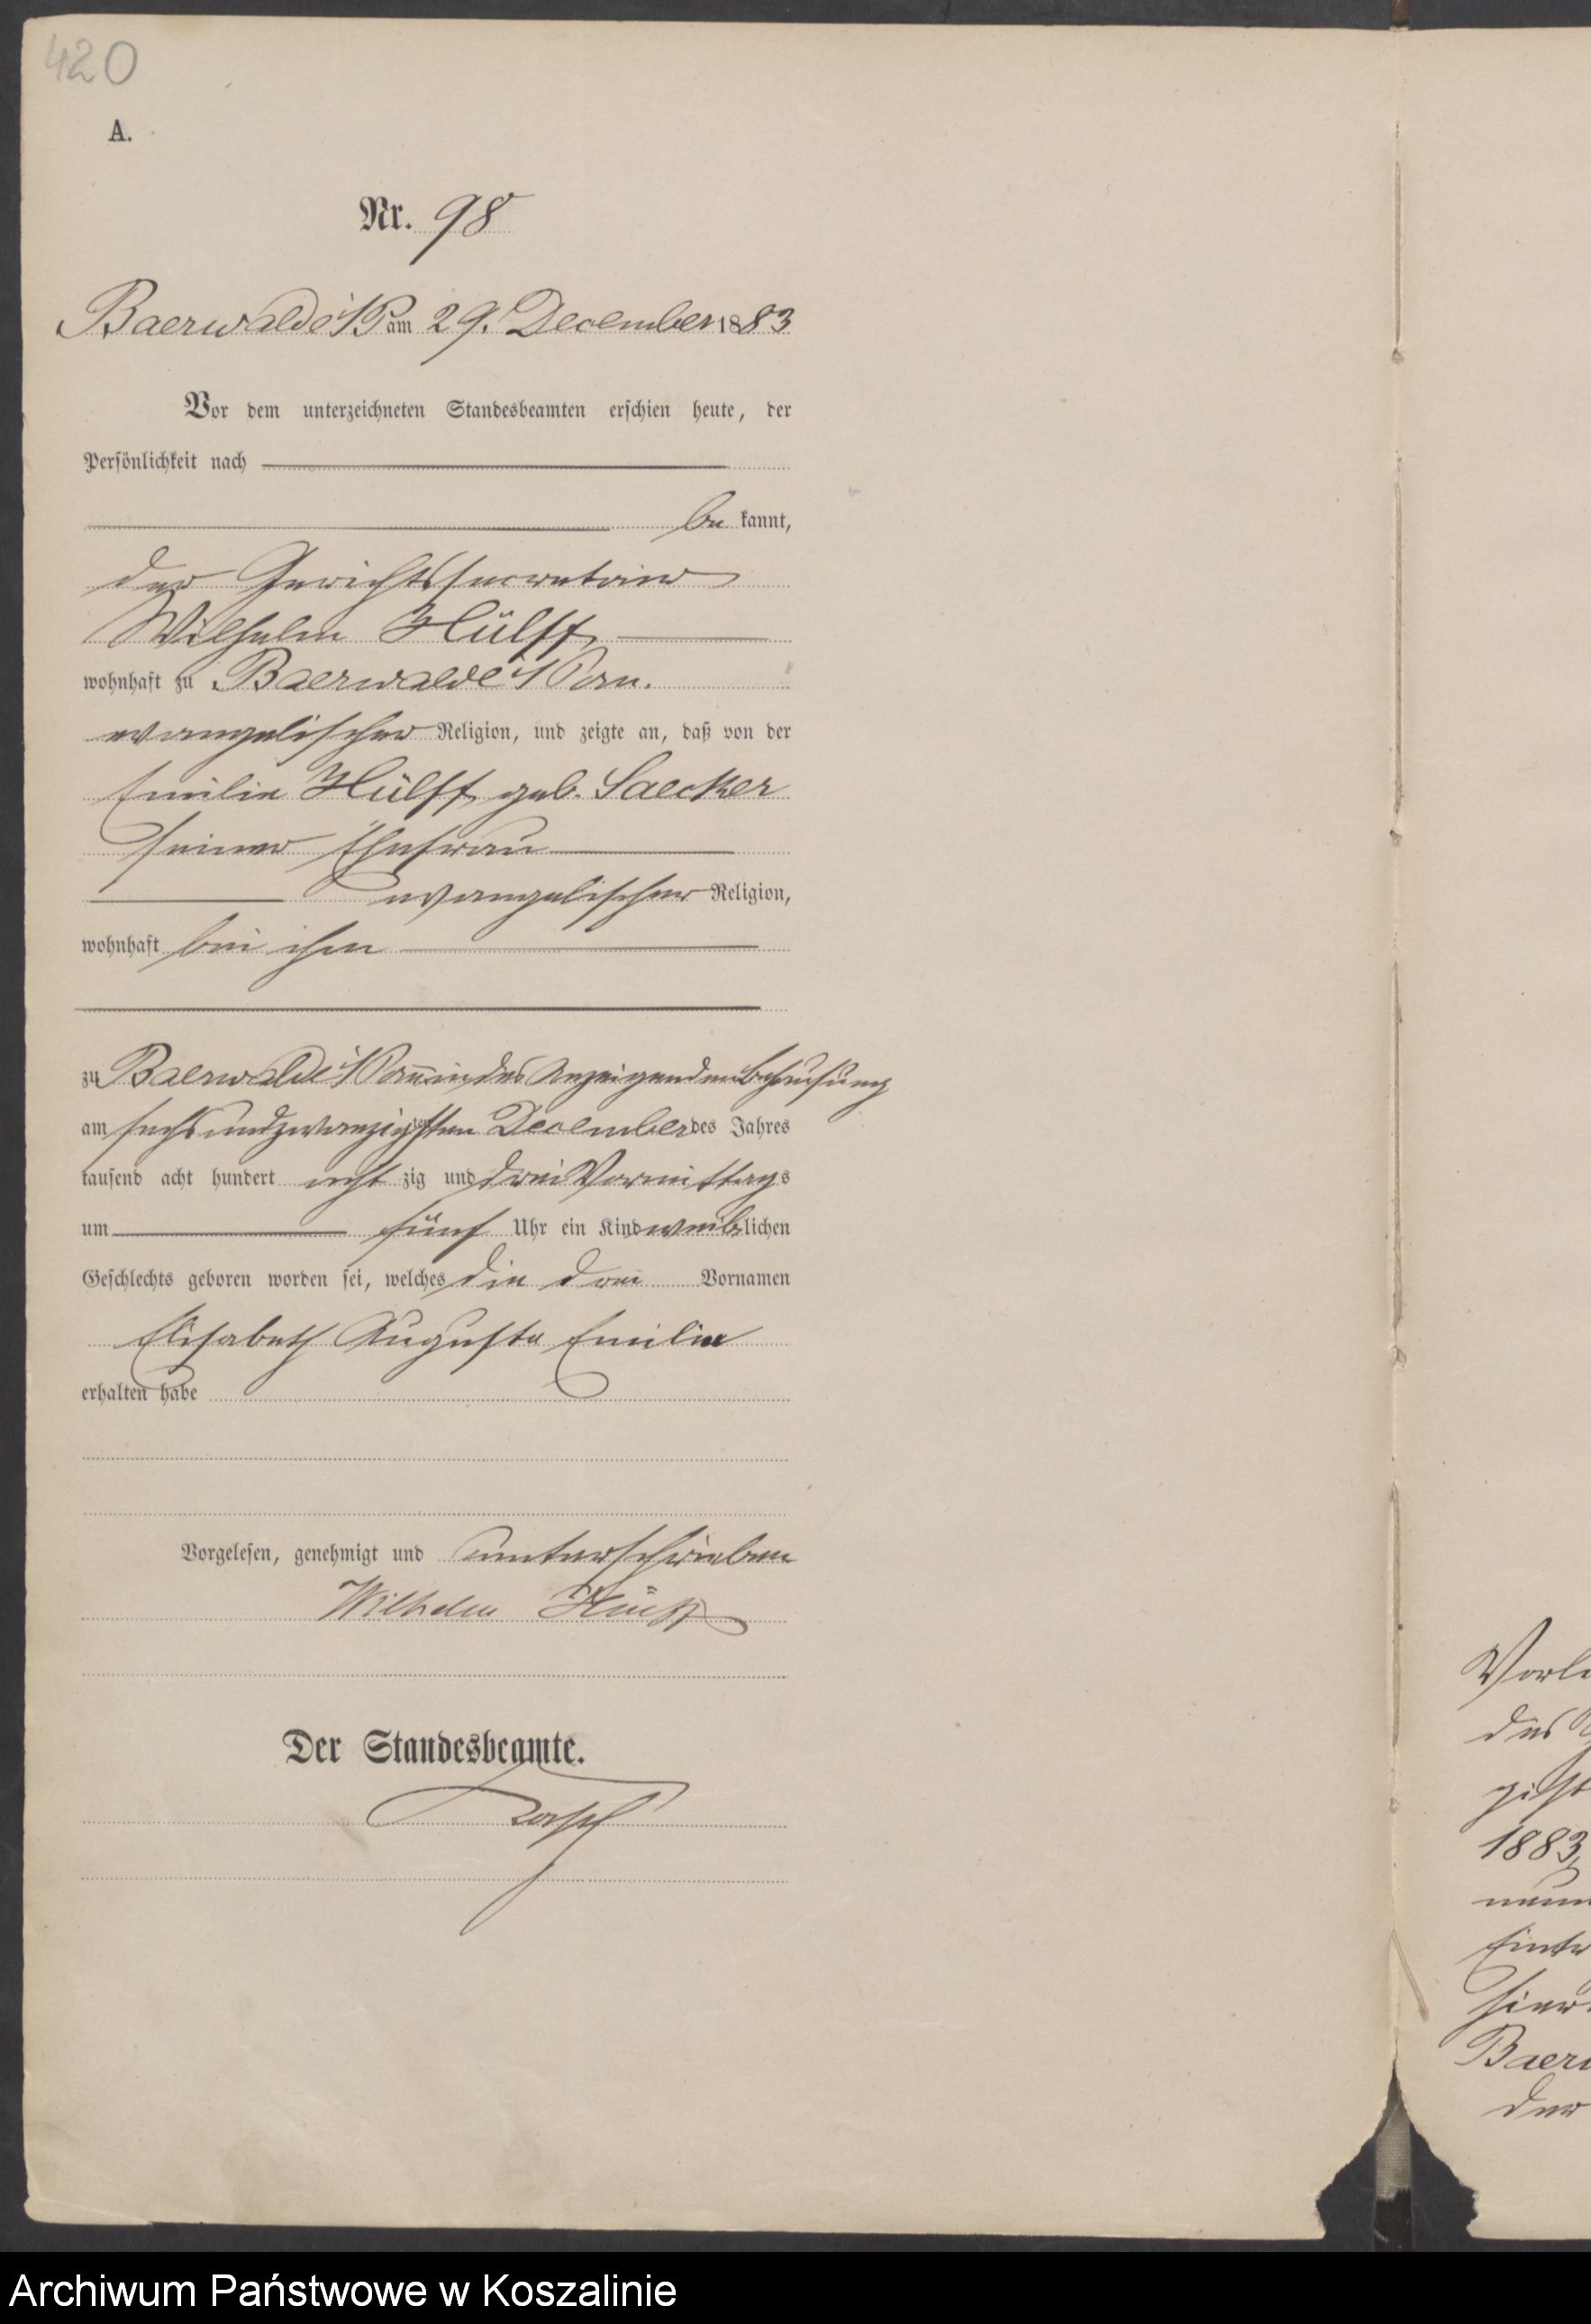 420
A.
Nr. 98
Baerwalde i/P am 29. December 1883
Vor dem unterzeichneten Standesbeamten erschien heute, der
Persönlichkeit nach
be kannt,
der Gerichtssecretair
Wilhelm Hülff
wohnhaft zu Baerwalde i/Pom.
evangelischer Religion, und zeigte an, daß von der
Emilie Hülff geb. Saecker
seiner Ehefrau
evangelischer Religion,
wohnhaft bei ihm
zu Baerwalde i/Pom in des Anzeigenden Behausung
am sechsundzwanzigsten December des Jahres
tausend acht hundert acht zig und drei Vormittags
um fünf Uhr ein Kind weiblichen
Geschlechts geboren worden sei, welches die drei Vornamen
Elisabeth Auguste Emilie
erhalten habe
Vorgelesen, genehmigt und unterschrieben
Wilhelm Hülff
Der Standesbeamte.
Vorl
des
1883,
neun
Baer
der
Archiwum Państwowe w Koszalinie